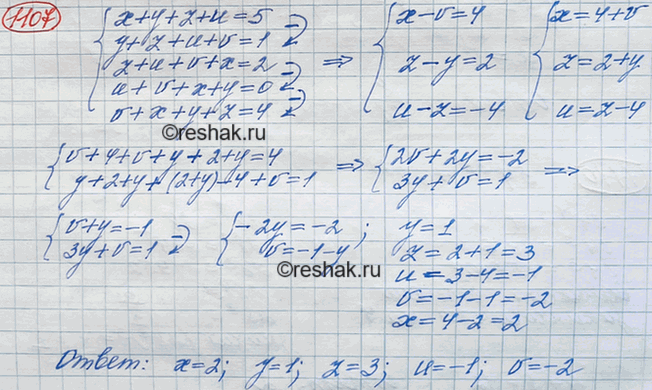 1107
x+y+z+u=5
y+z+u+v=1
z+u+v+x=2
u+v+x+y=0
v+x+y+z=4
⇒
x-v=4
z-y=2
u-z=-4
x=4+v
z=2+y
u=z-4
©reshak.ru
v+4+v+y+2+y=4
y+2+y+(2+y)-4+v=1
⇒
2v+2y=-2
3y+v=1
⇒
v+y=-1
3y+v=1
-2y=-2;
v=-1-y
y=1
z=2+1=3
u=3-4=-1
v=-1-1=-2
x=4-2=2
©reshak.ru
Ответ: x=2; y=1; z=3; u=-1; v=-2